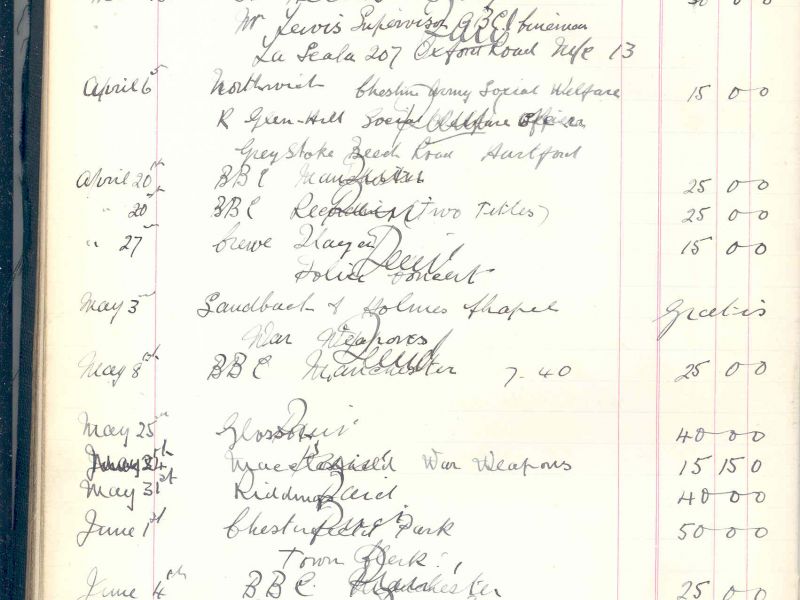 Mr Lewis Supervisor A.B.C. Cinemas
La Scala 207 Oxford Road M/c 13
April 6th Northwich Cheshire Army Social Welfare 15 0 0
R Green-Hill Social Welfare Officer
Greystoke Beech Road Hartford
April 20th BBC Manchester 25 0 0
" 20th BBC Recording (Two Titles) 25 0 0
" 27th Crewe Paid 15 0 0
Police Concert
May 3rd Sandbach & Holmes Chapel Gratis
War Weapons
May 8th BBC Manchester 7-40 Paid 25 0 0
May 25th Glossop Paid 40 0 0
Macclesfield War Weapons 15 15 0
May 31st Riddings Paid 40 0 0
June 1st Chesterfield Park 50 0 0
Town Clerk
June 4th BBC Manchester 25 0 0